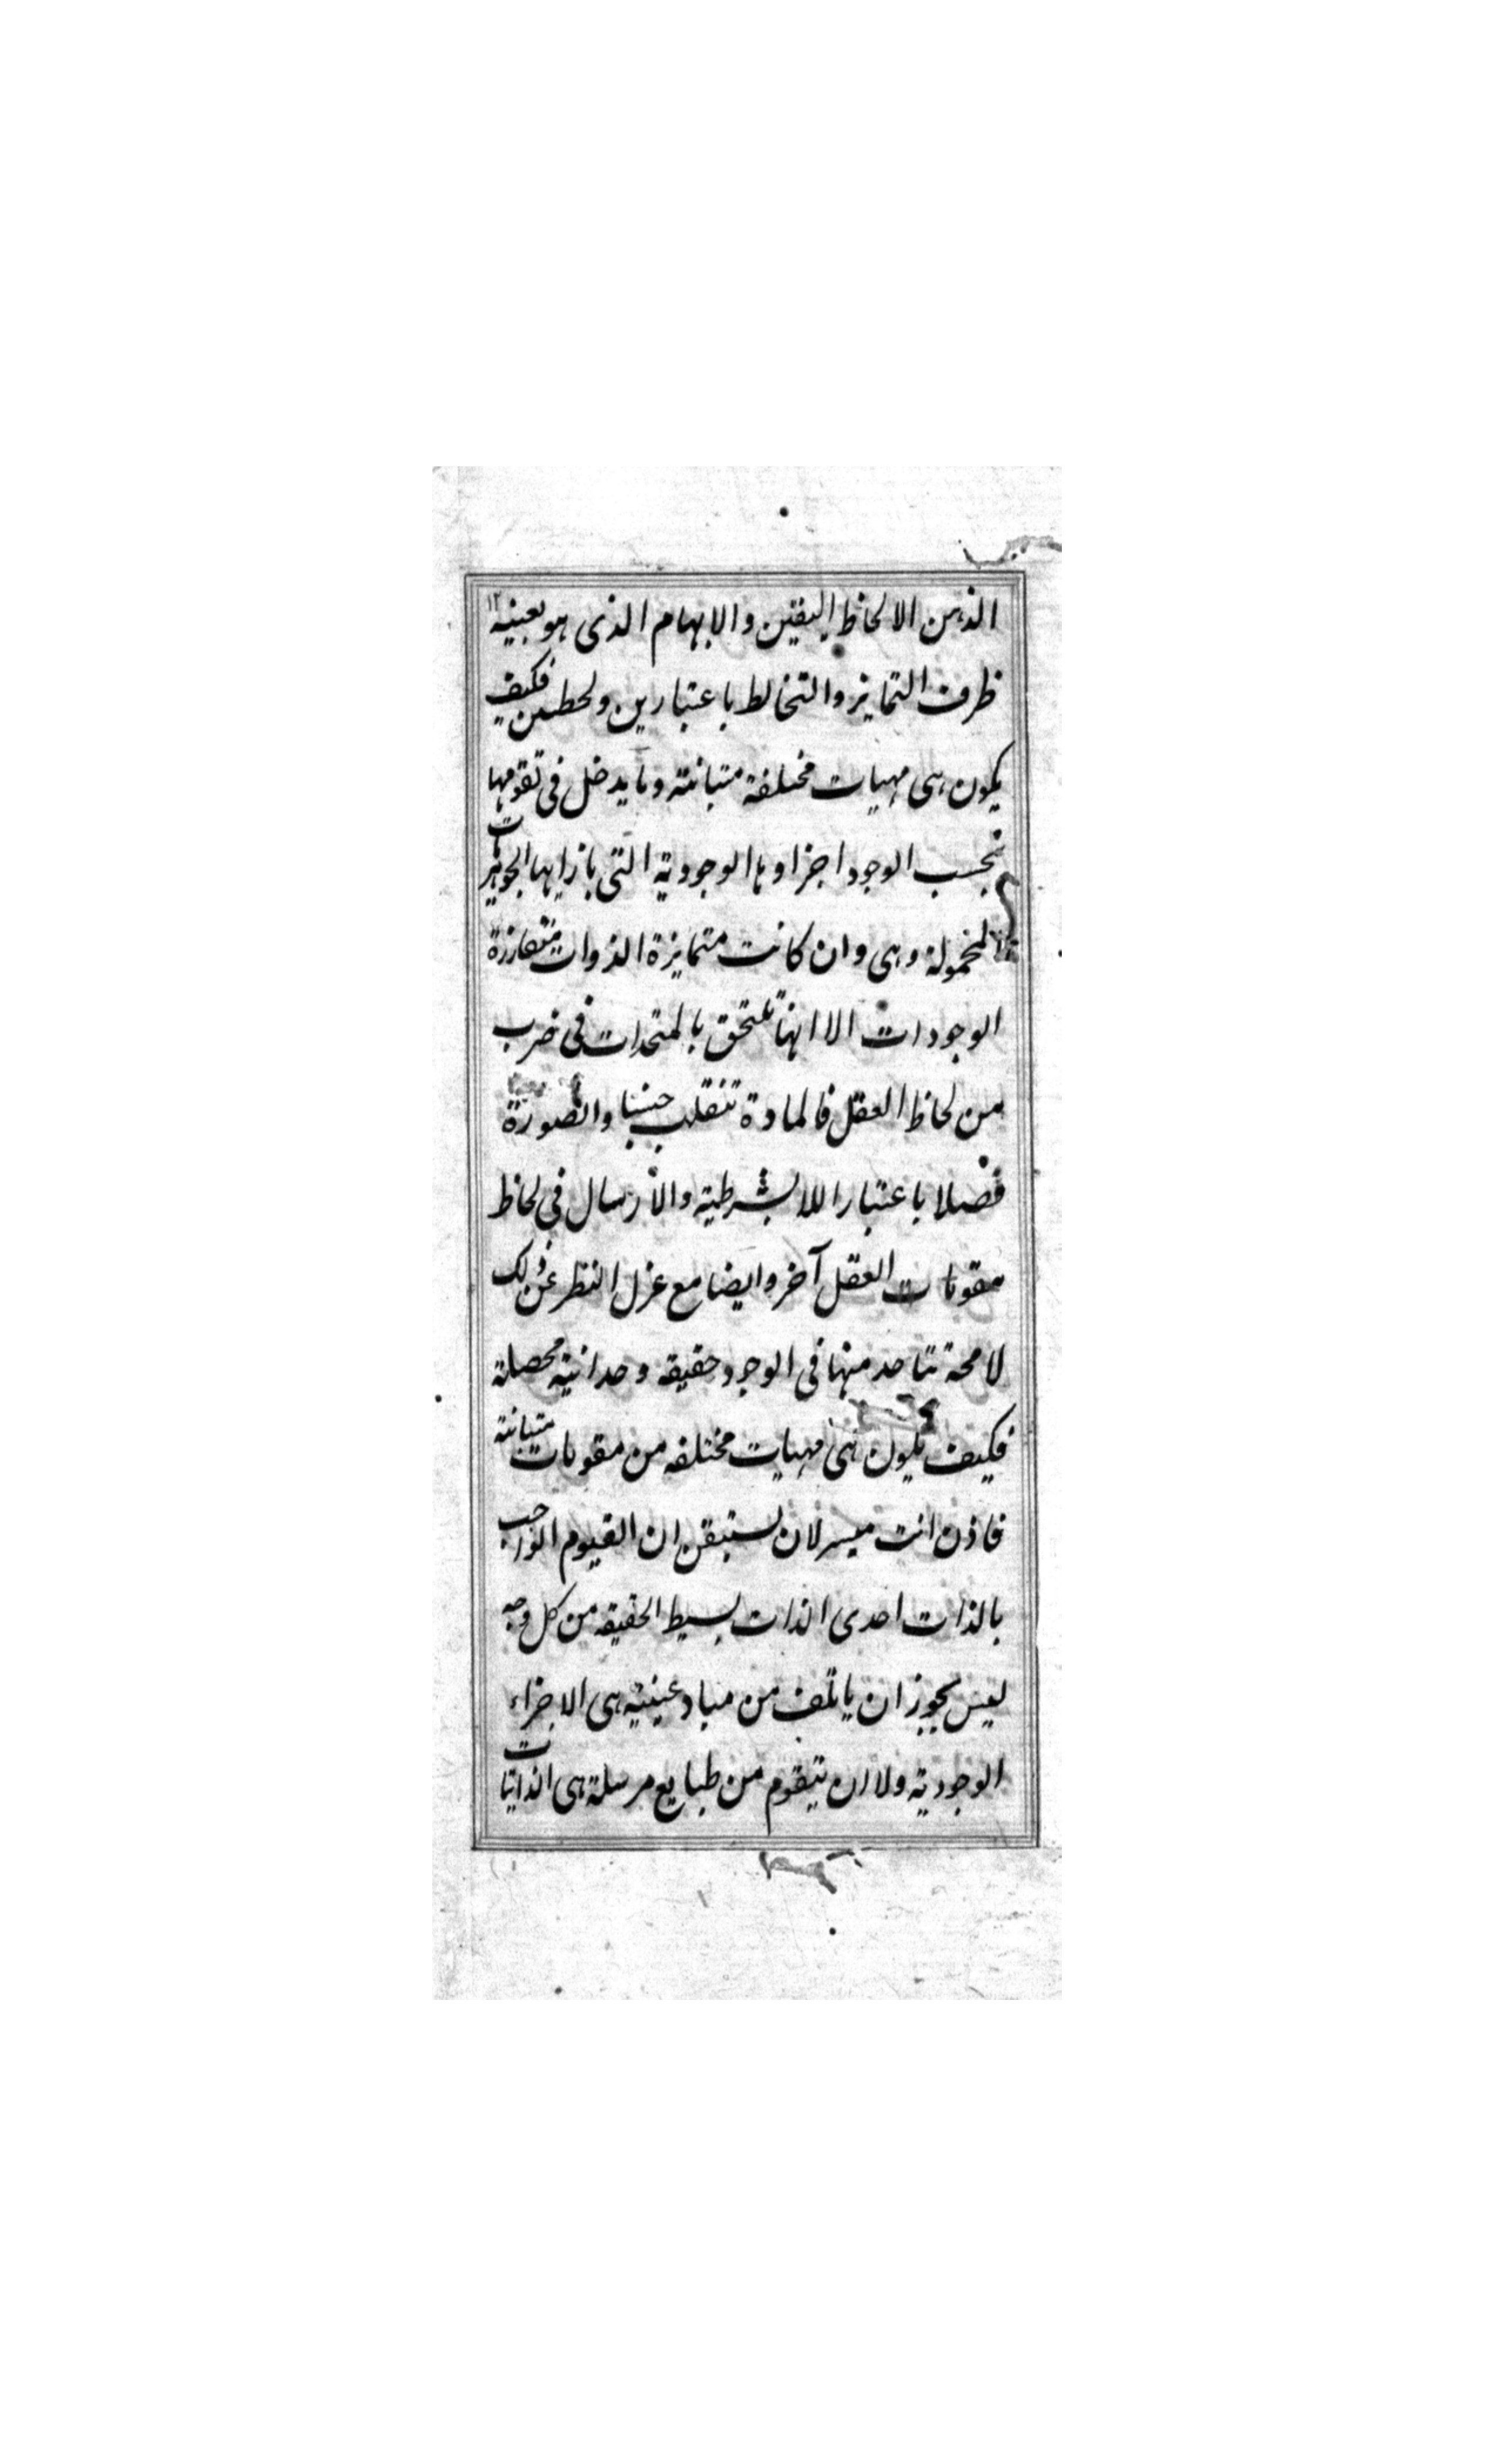 الذهن الا لحاظ اليقين والابهام الذى هو بعينه ١٢
ظرف التمايز والتخالط باعتبارين ولحظين فكيف
يكون هى مهيات مختلفة متباينة وما يدخل فى تقومها
بحسب الوجود اجزاوها الوجودية التى بازايها الجوهريات
المحمولة وهى وان كانت متمايزة الذوات متفارزة
الوجودات الا انها تلتحق بالمتحدات فى ضرب
من لحاظ العقل فالمادة تنقلب جنسا والصورة
فصلا باعتبار اللابشرطية والارسال فى لحاظ
مقومات العقل آخر وايضا مع عزل النظر عن ذلك
لا محة تتاحد منها فى الوجود حقيقه وحدانية محصلة
فكيف يكون هى مهيات مختلفه من مقومات متباينة
فاذن انت ميسر لان تستيقن ان القيوم الواجب
بالذات احدى الذات بسيط الحقيقه من كل وجه
ليس يجوز ان ياتلف من مباد عينية هى الاجزاء
الوجودية ولا ان يتقوم من طبايع مرسلة هى الذاتيات